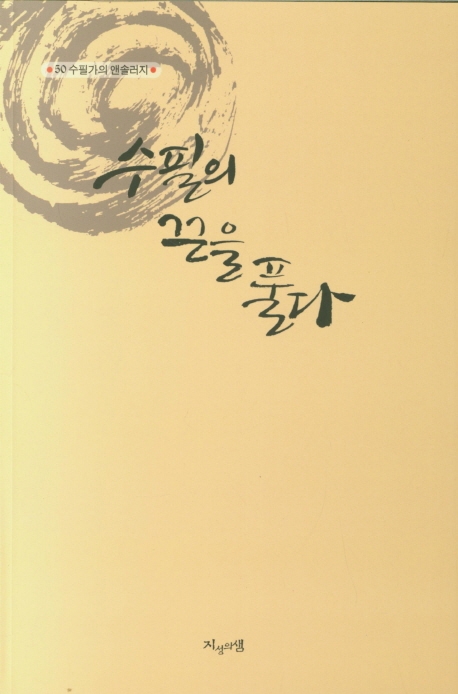 30 수필가의 앤솔러지
수필의
끈을
풀다
지성의샘